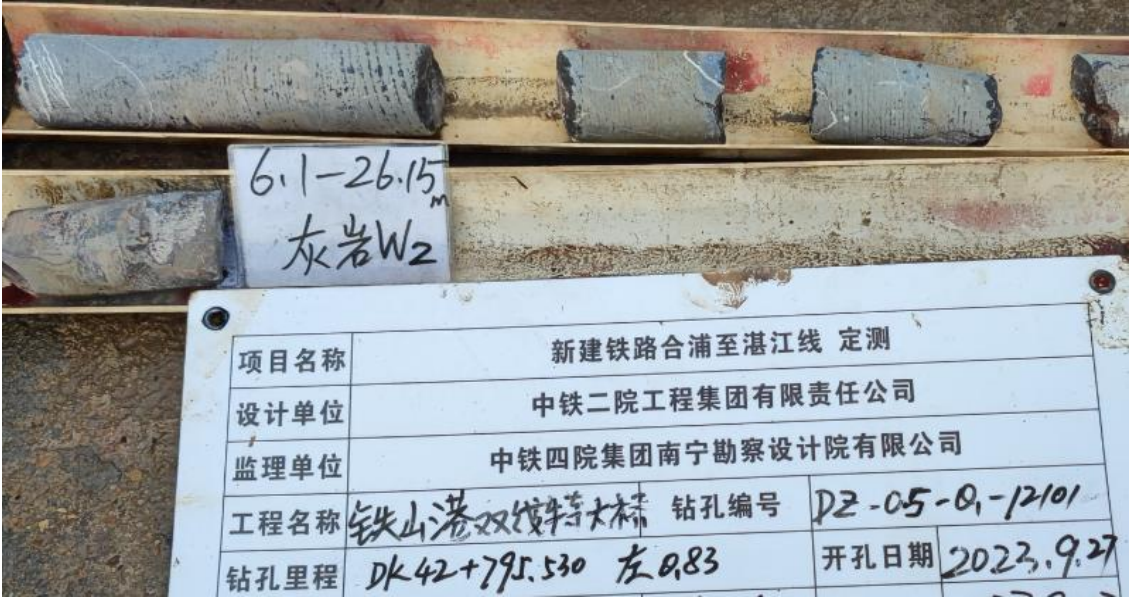 6.1-26.15m
灰岩W2
项目名称 新建铁路合浦至湛江线 定测
设计单位 中铁二院工程集团有限责任公司
监理单位 中铁四院集团南宁勘察设计院有限公司
工程名称 铁山港双线特大桥 钻孔编号 DZ-05-Q1-12101
钻孔里程 DK42+795.530 左0.83 开孔日期 2023.9.27